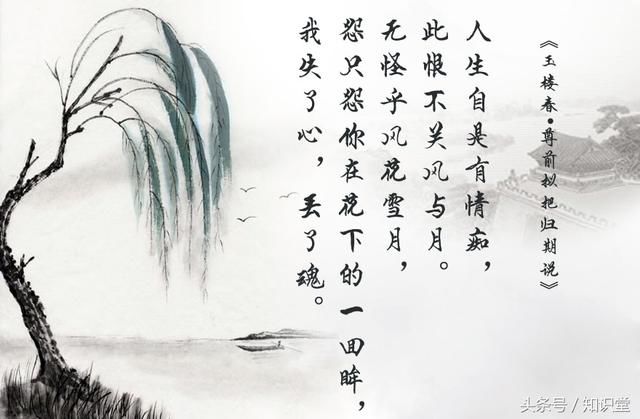 《玉楼春•尊前拟把归期说》
人生自是有情痴，
此恨不关风与月。
无怪乎风花雪月，
怨只怨你在花下的一回眸，
我失了心，丢了魂。
头条号/知识堂